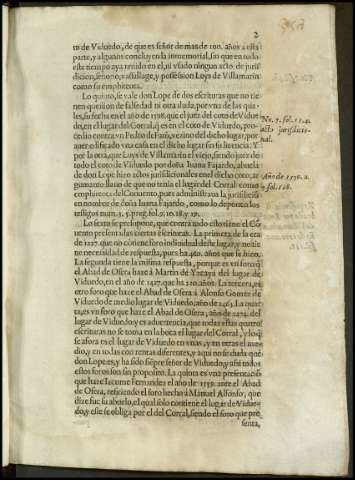 2
to de Viduedo, de que es señor de mas de 100. años a esta
parte, y algunos concluyen la inmemorial, sin que en todo
este tiempo aya tenido en el, ni vsado ningun acto de juris
dicion, señorio, vassallage, y possession Loys de Villamarin
como su emphiteota.
Lo quinto, se vale don Lope de dos escrituras que no tie
nen question de falsedad ni otra duda, por vna de las qua-
les, su fecha en el año de 1538. que el juez del coto de Viduedo
en el lugar del Corral, q̃ es en el coto de Viduedo, pro-
cedio contra vn Pedro del vezino del dicho lugar, por
auer
vna casa en el dicho lugar sin su licencia. Y
por la otra, que Luys de Villamarin el viejo, siendo juez de
todo el coto de Viduedo por doña Iuana Fajardo, abuela
de don Lope hizo actos jurisdicionales en el dicho coto, ar
gumento llano de que no tenia el lugar del Corral como
emphiteota del Conuento, pues administraua la jurisdicion
en nombre de doña Iuana Fajardo, como lo deponen los
testigos num. 3. preg.
Lo sexto se presupone, que contra todo esto tiene el Co
nuento presentadas ciertas escrituras. La primera de la era
de 1227. que no contiene foro indiuidual deste lugar, y no tie
ne necessidad de respuesta, pues ha 400. años que se hizo.
La segunda tiene la misma respuesta, porque es vn foro q̃
el Abad de Osera haze à Martin de del lugar de
Viduedo, en el año de 1427. que ha 210. años. La tercera, es
otro foro que haze el Abad de Osera à Alonso Gomez de
Viduedo de medio lugar de Viduedo, año de 1463. La quar
ta, es vn foro que haze el Abad de Osera, año de 1474. del
lugar de Viduedo: y es aduertencia, que todas estas quatro
escrituras no se toma en la boca el lugar del Corral, y lo q̃
se afora es el lugar de Viduedo en vnas, y en otras el me-
dio, y en todas con rentas diferentes, y aqui no se duda que
don Lope es, y ha sido siẽpre señor de Viduedo, y assi todos
estos foros son sin proposito. La quinta es vna presentacio
que haze Iacome Fernandez el año de 1539. ante el Abad
de Osera, refiriendo el foro hecho à Manuel Alfonso, que
dize fue su abuelo, el qual solo contiene el lugar de Vidue-
do, y este se obliga por el del Corral, siendo el foro que pre
senta,
No. 7. fol.
acto jurisdicio-
nal.
Año de 1570. a
fol. 168.